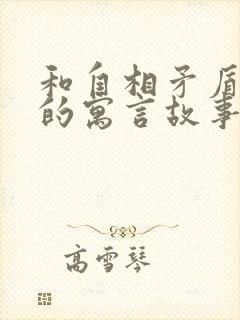 和自相矛盾
的寓言故事
高雪琴